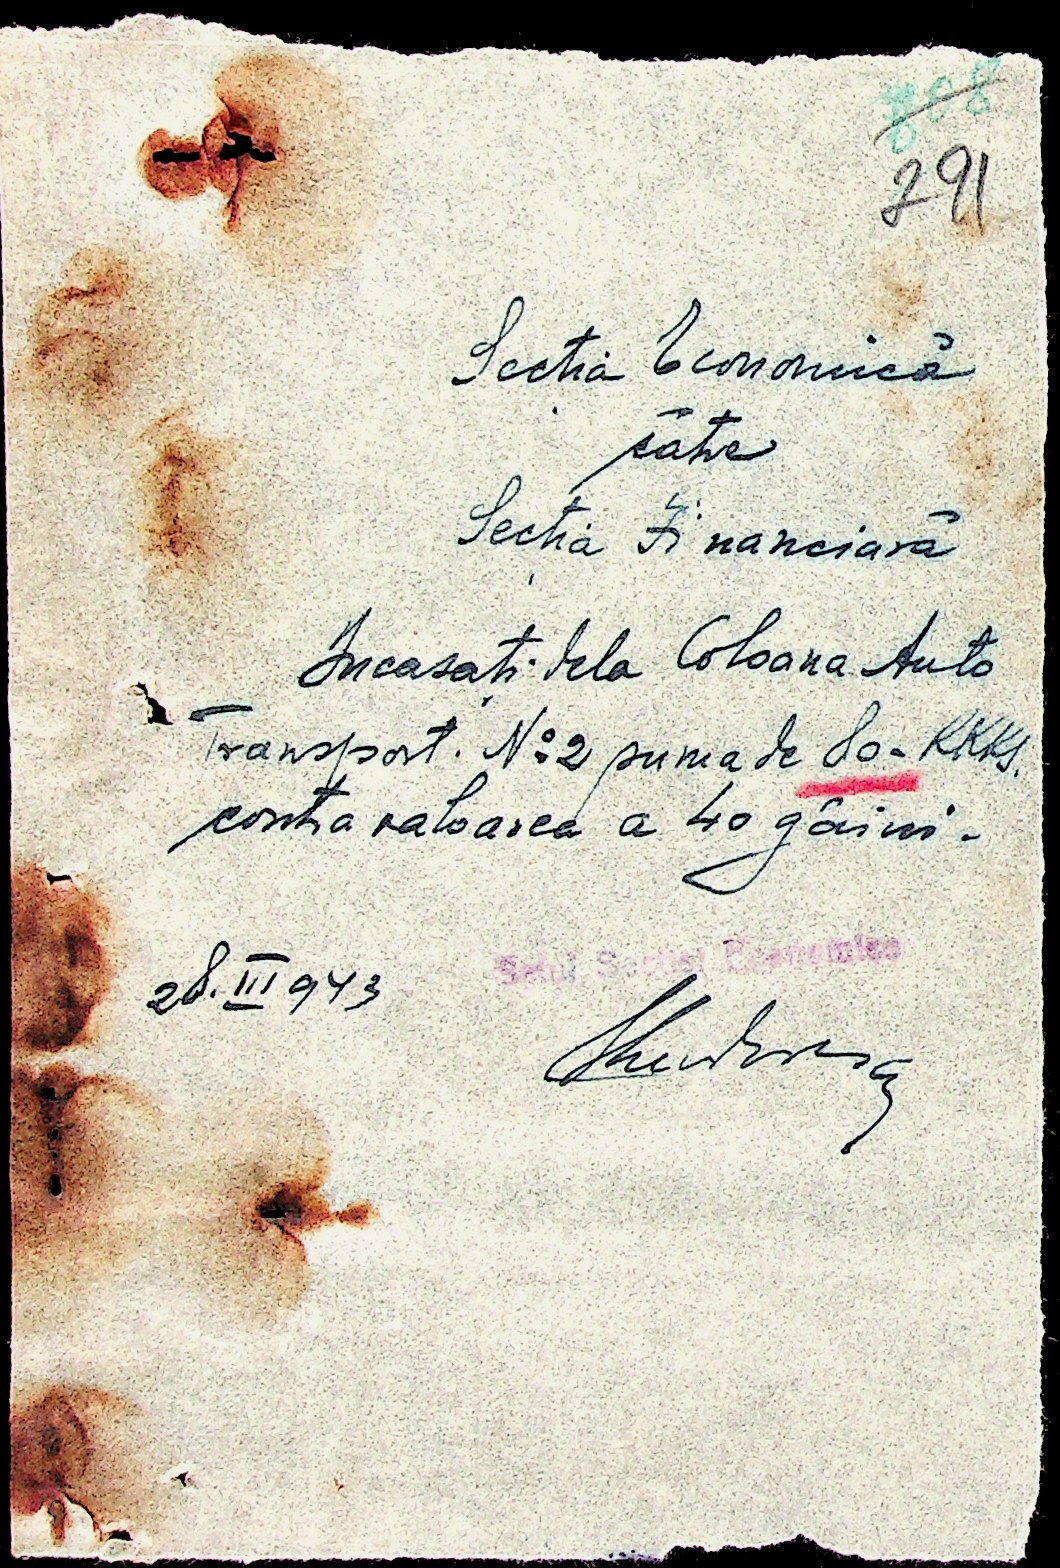 308
291
Secția Economică
către
Secția Financiară
Incasați dela Coloana Auto
Transport. No 2 suma de 80- RKKS.
contravaloarea a 40 găini.-
28.III 943
Șeful Secției Economice